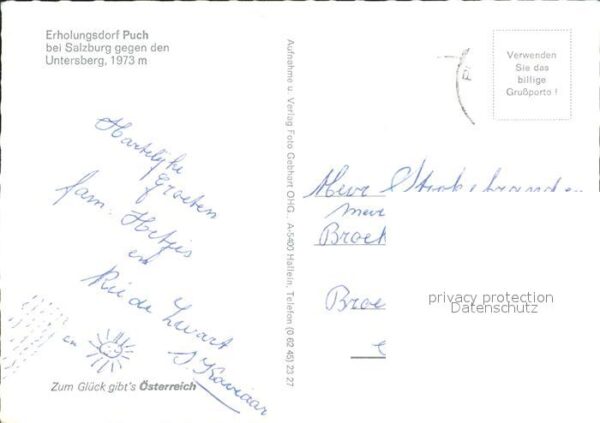 Erholungsdorf Puch
bei Salzburg gegen den
Untersberg, 1973 m
Hartelijke
groeten
fam. Hetjes
en
Rui de Zwart
en
Zum Glück gibt's Österreich
Aufnahme u. Verlag Foto Gebhart OHG., A-5400 Hallein, Telefon (0 62 45) 23 27
Verwenden
Sie das
billige
Grußporto !
Heer
Broek
Broe
privacy protection
Datenschutz